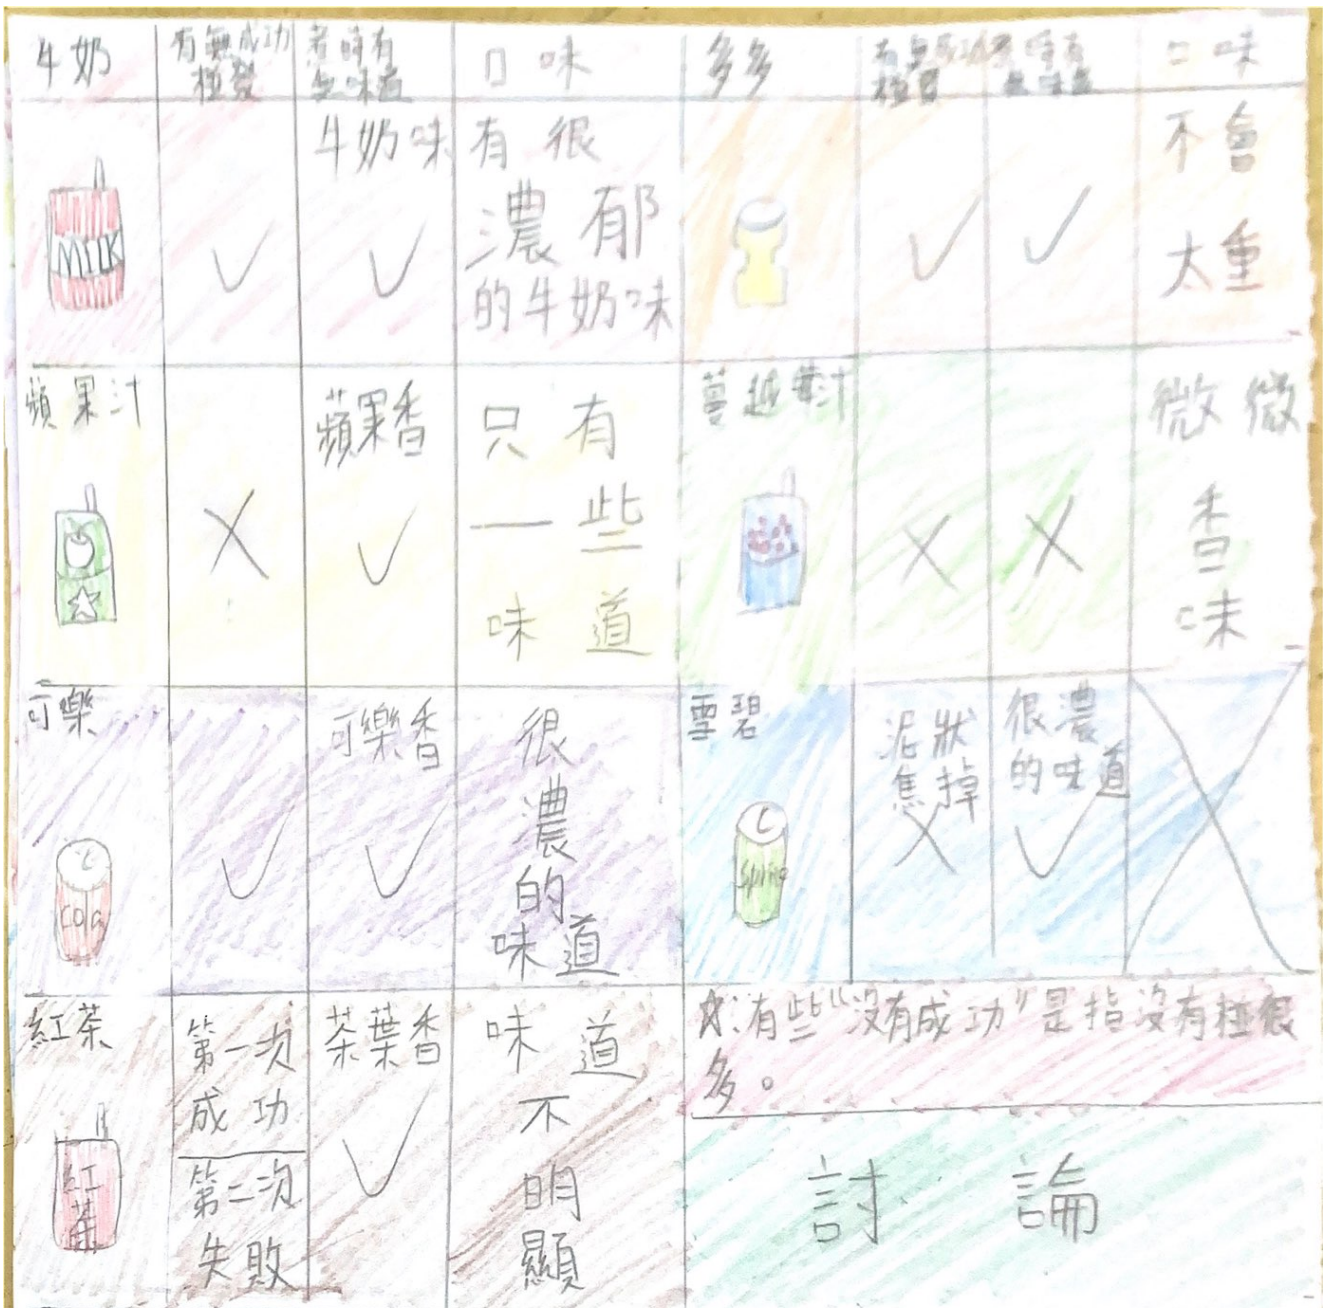 牛奶
有無成功
碰發
煮時有
無味道
口味
多多
有無成功
煮時有
無味道
口味
MILK
牛奶味
有很
濃郁
的牛奶味
不會
太重
蘋果汁
蘋果香
只有
一些
味道
蔓越莓汁
微微
香
味
可樂
cola
可樂香
很
濃
的
味道
雪碧
泥狀
焦掉
很濃
的味道
紅茶
紅
茶
第一次
成功
第二次
失敗
茶葉香
味道
不
明
顯
☆:有些"沒有成功"是指沒有碰很
多。
討論